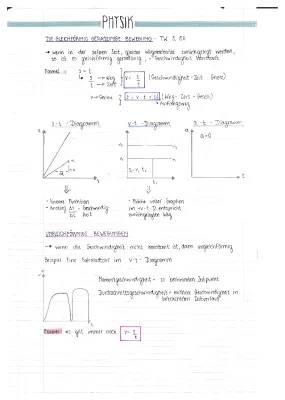 PHYSIK
DIE GLEICHFÖRMIG GERADLINIGE BEWEGUNG - TW S. 84
→ wenn in der selben Zeit, gleiche Wegabschnitte zurückgelegt werden,
so ist es gleichförmig geradlinig → Geschwindigkeit konstant
Formel: s ~ t
s → Weg
t → Zeit
v = s/t
(Geschwindigkeit - Zeit - Gesetz)
s = v · t + s₀
(Weg - Zeit - Gesetz)
Anfangsweg
s - t - Diagramm
v - t - Diagramm
a - t - Diagramm
a = 0
• lineare Funktion
• Anstieg Δs/Δt = Geschwindigkeit
• Fläche unter Graphen
im v-t-D. entspricht
zurückgelegtem Weg
UNGLEICHFÖRMIGE BEWEGUNGEN
→ wenn die Geschwindigkeit nicht konstant ist, dann ungleichförmig
Beispiel eine Fahrradfahrt im v-t - Diagramm
Momentangeschwindigkeit - zu bestimmten Zeitpunkt
Durchschnittsgeschwindigkeit - mittlere Geschwindigkeit in
bestimmtem Zeitverlauf
Formel: es gilt immer noch v = s/t